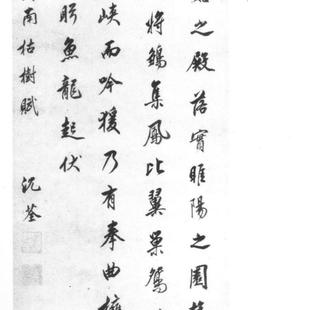 之殿落實睢陽之園
將鶵集鳳比翼巢鴛
峽而吟猨乃有拳曲擁
盼魚龍起伏
南枯樹賦 沈荃